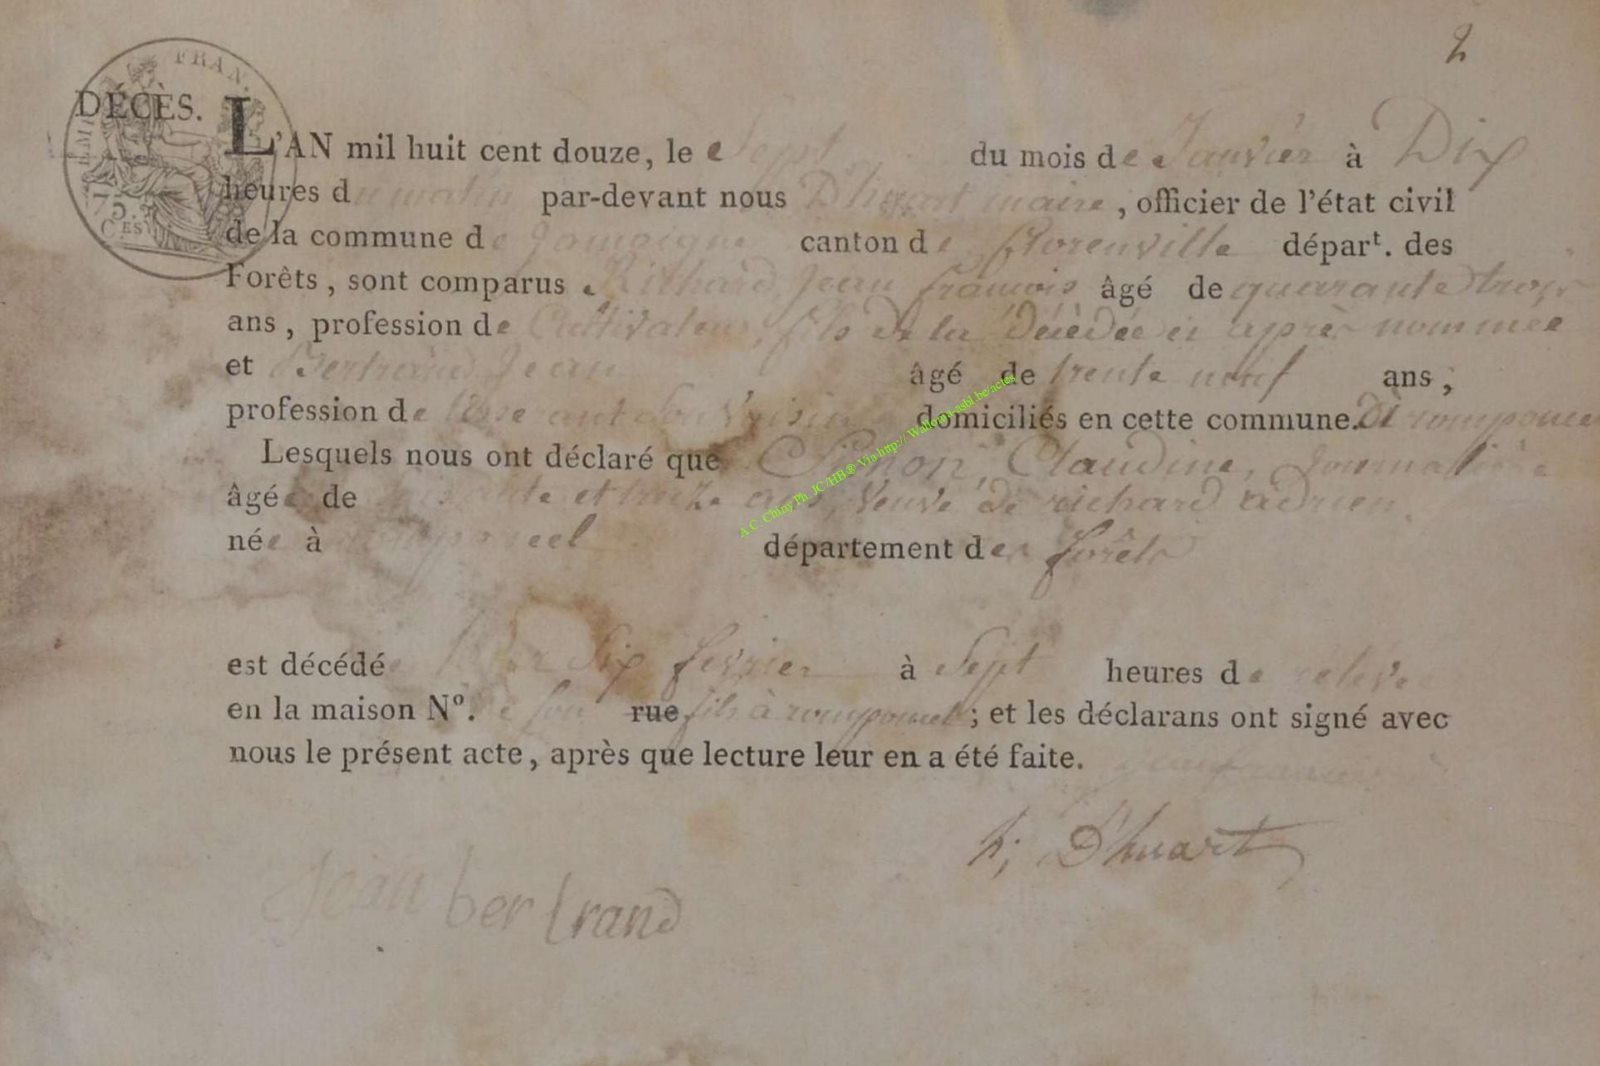 2
EMPIRE FRAN.
75.
CES
DÉCÈS. L'AN mil huit cent douze, le Sept du mois de Janvier à Dix
heures du matin par-devant nous D'huart maire, officier de l'état civil
de la commune de Jamoigne canton de florenville départ. des
Forêts, sont comparus Richard Jean francois âgé de quarante trois
ans, profession de Cultivateur, fils de la décédée ci après nommée
et Bertrand Jean âgé de trente neuf ans,
profession de voisin domiciliés en cette commune. romponcel
Lesquels nous ont déclaré que Simon, Claudine, Journalière
âgée de et treize ans, veuve de richard adrien
née à département des forêts
est décédée Six fevrier à Sept heures de relevée
en la maison N°. de son rue fils à romponcel ; et les déclarans ont signé avec
nous le présent acte, après que lecture leur en a été faite.
Jean francois
h; D'huart
Jean bertrand
A.C. Chiny Ph JC /HB® Via http:// Wallonia-asbl.be/actes